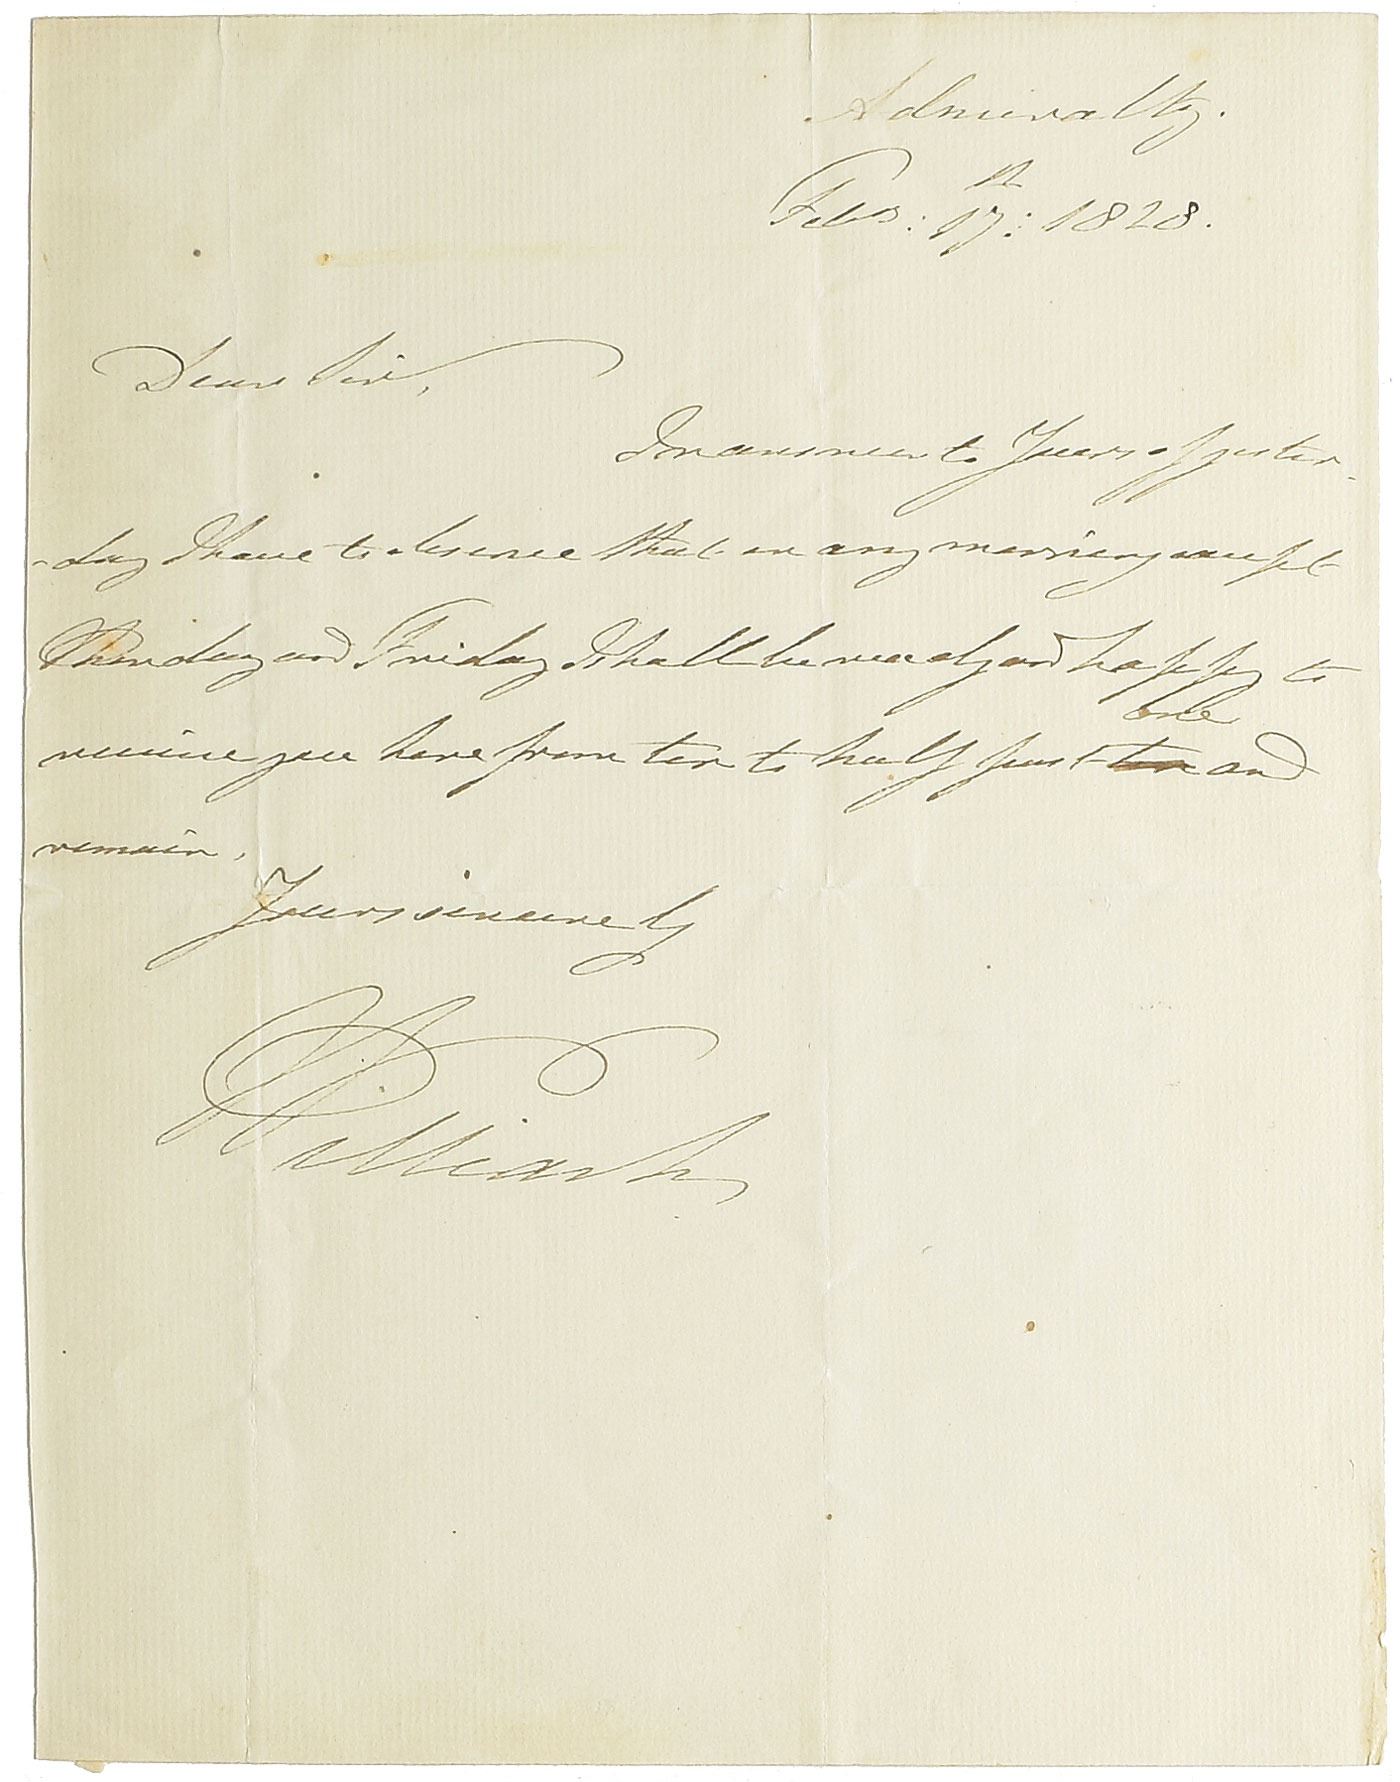 Admiralty.
Feb: 17th: 1828.
Dear Sir,
In answer to Yours of yester-
-day I have to observe that on any morning except
Thursday and Friday I shall be ready and happy to
one
receive you here from ten to half past ten and
remain,
Yours sincerely
William